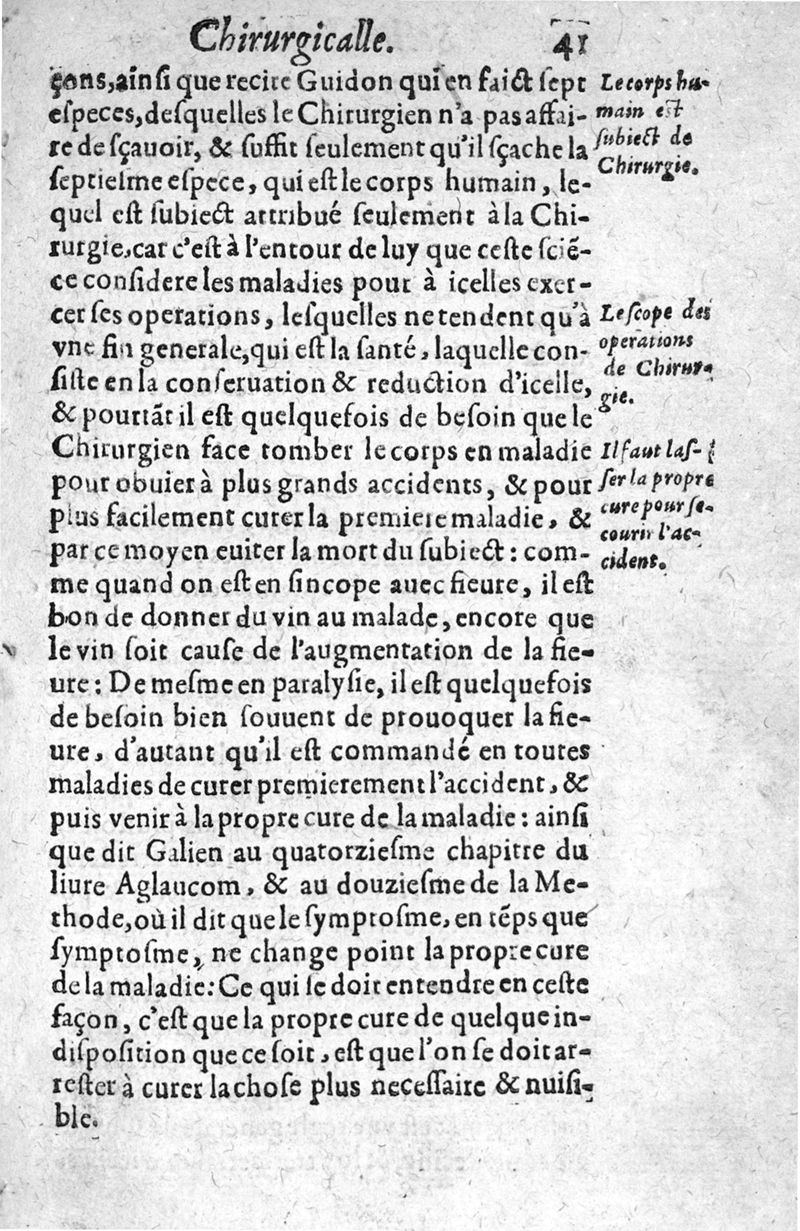 Chirurgicalle. 41
çons, ainſi que recite Guidon qui en faict ſept
eſpeces, deſquelles le Chirurgien n'a pas affai-
re de ſçauoir, & ſuffit ſeulement qu'il ſçache la
ſeptieſme eſpece, qui eſt le corps humain, le-
quel eſt ſubiect attribué ſeulement à la Chi-
rurgie, car c'eſt à l'entour de luy que ceſte ſciē-
ce conſidere les maladies pour à icelles exer-
cer ſes operations, leſquelles ne tendent qu'à
vne fin generale, qui eſt la ſanté, laquelle con-
ſiſte en la conſeruation & reduction d'icelle,
& pourtāt il eſt quelquefois de beſoin que le
Chirurgien face tomber le corps en maladie
pour obuier à plus grands accidents, & pour
plus facilement curer la premiere maladie, &
par ce moyen euiter la mort du ſubiect : com-
me quand on eſt en ſincope auec fieure, il eſt
bon de donner du vin au malade, encore que
le vin ſoit cauſe de l'augmentation de la fie-
ure : De meſme en paralyſie, il eſt quelquefois
de beſoin bien ſouuent de prouoquer la fie-
ure, d'autant qu'il eſt commandé en toutes
maladies de curer premierement l'accident, &
puis venir à la propre cure de la maladie : ainſi
que dit Galien au quatorzieſme chapitre du
liure Aglaucom, & au douzieſme de la Me-
thode, où il dit que le ſymptoſme, en tēps que
ſymptoſme, ne change point la propre cure
de la maladie: Ce qui ſe doit entendre en ceſte
façon, c'eſt que la propre cure de quelque in-
diſpoſition que ce ſoit, eſt que l'on ſe doit ar-
reſter à curer la choſe plus neceſſaire & nuiſi-
ble.
Le corps hu-
main eſt
ſubiect de
Chirurgie.
Le ſcope des
operations
de Chirur-
gie.
Il faut laſ-
ſer la propre
cure pour ſe-
courir l'ac-
cident.